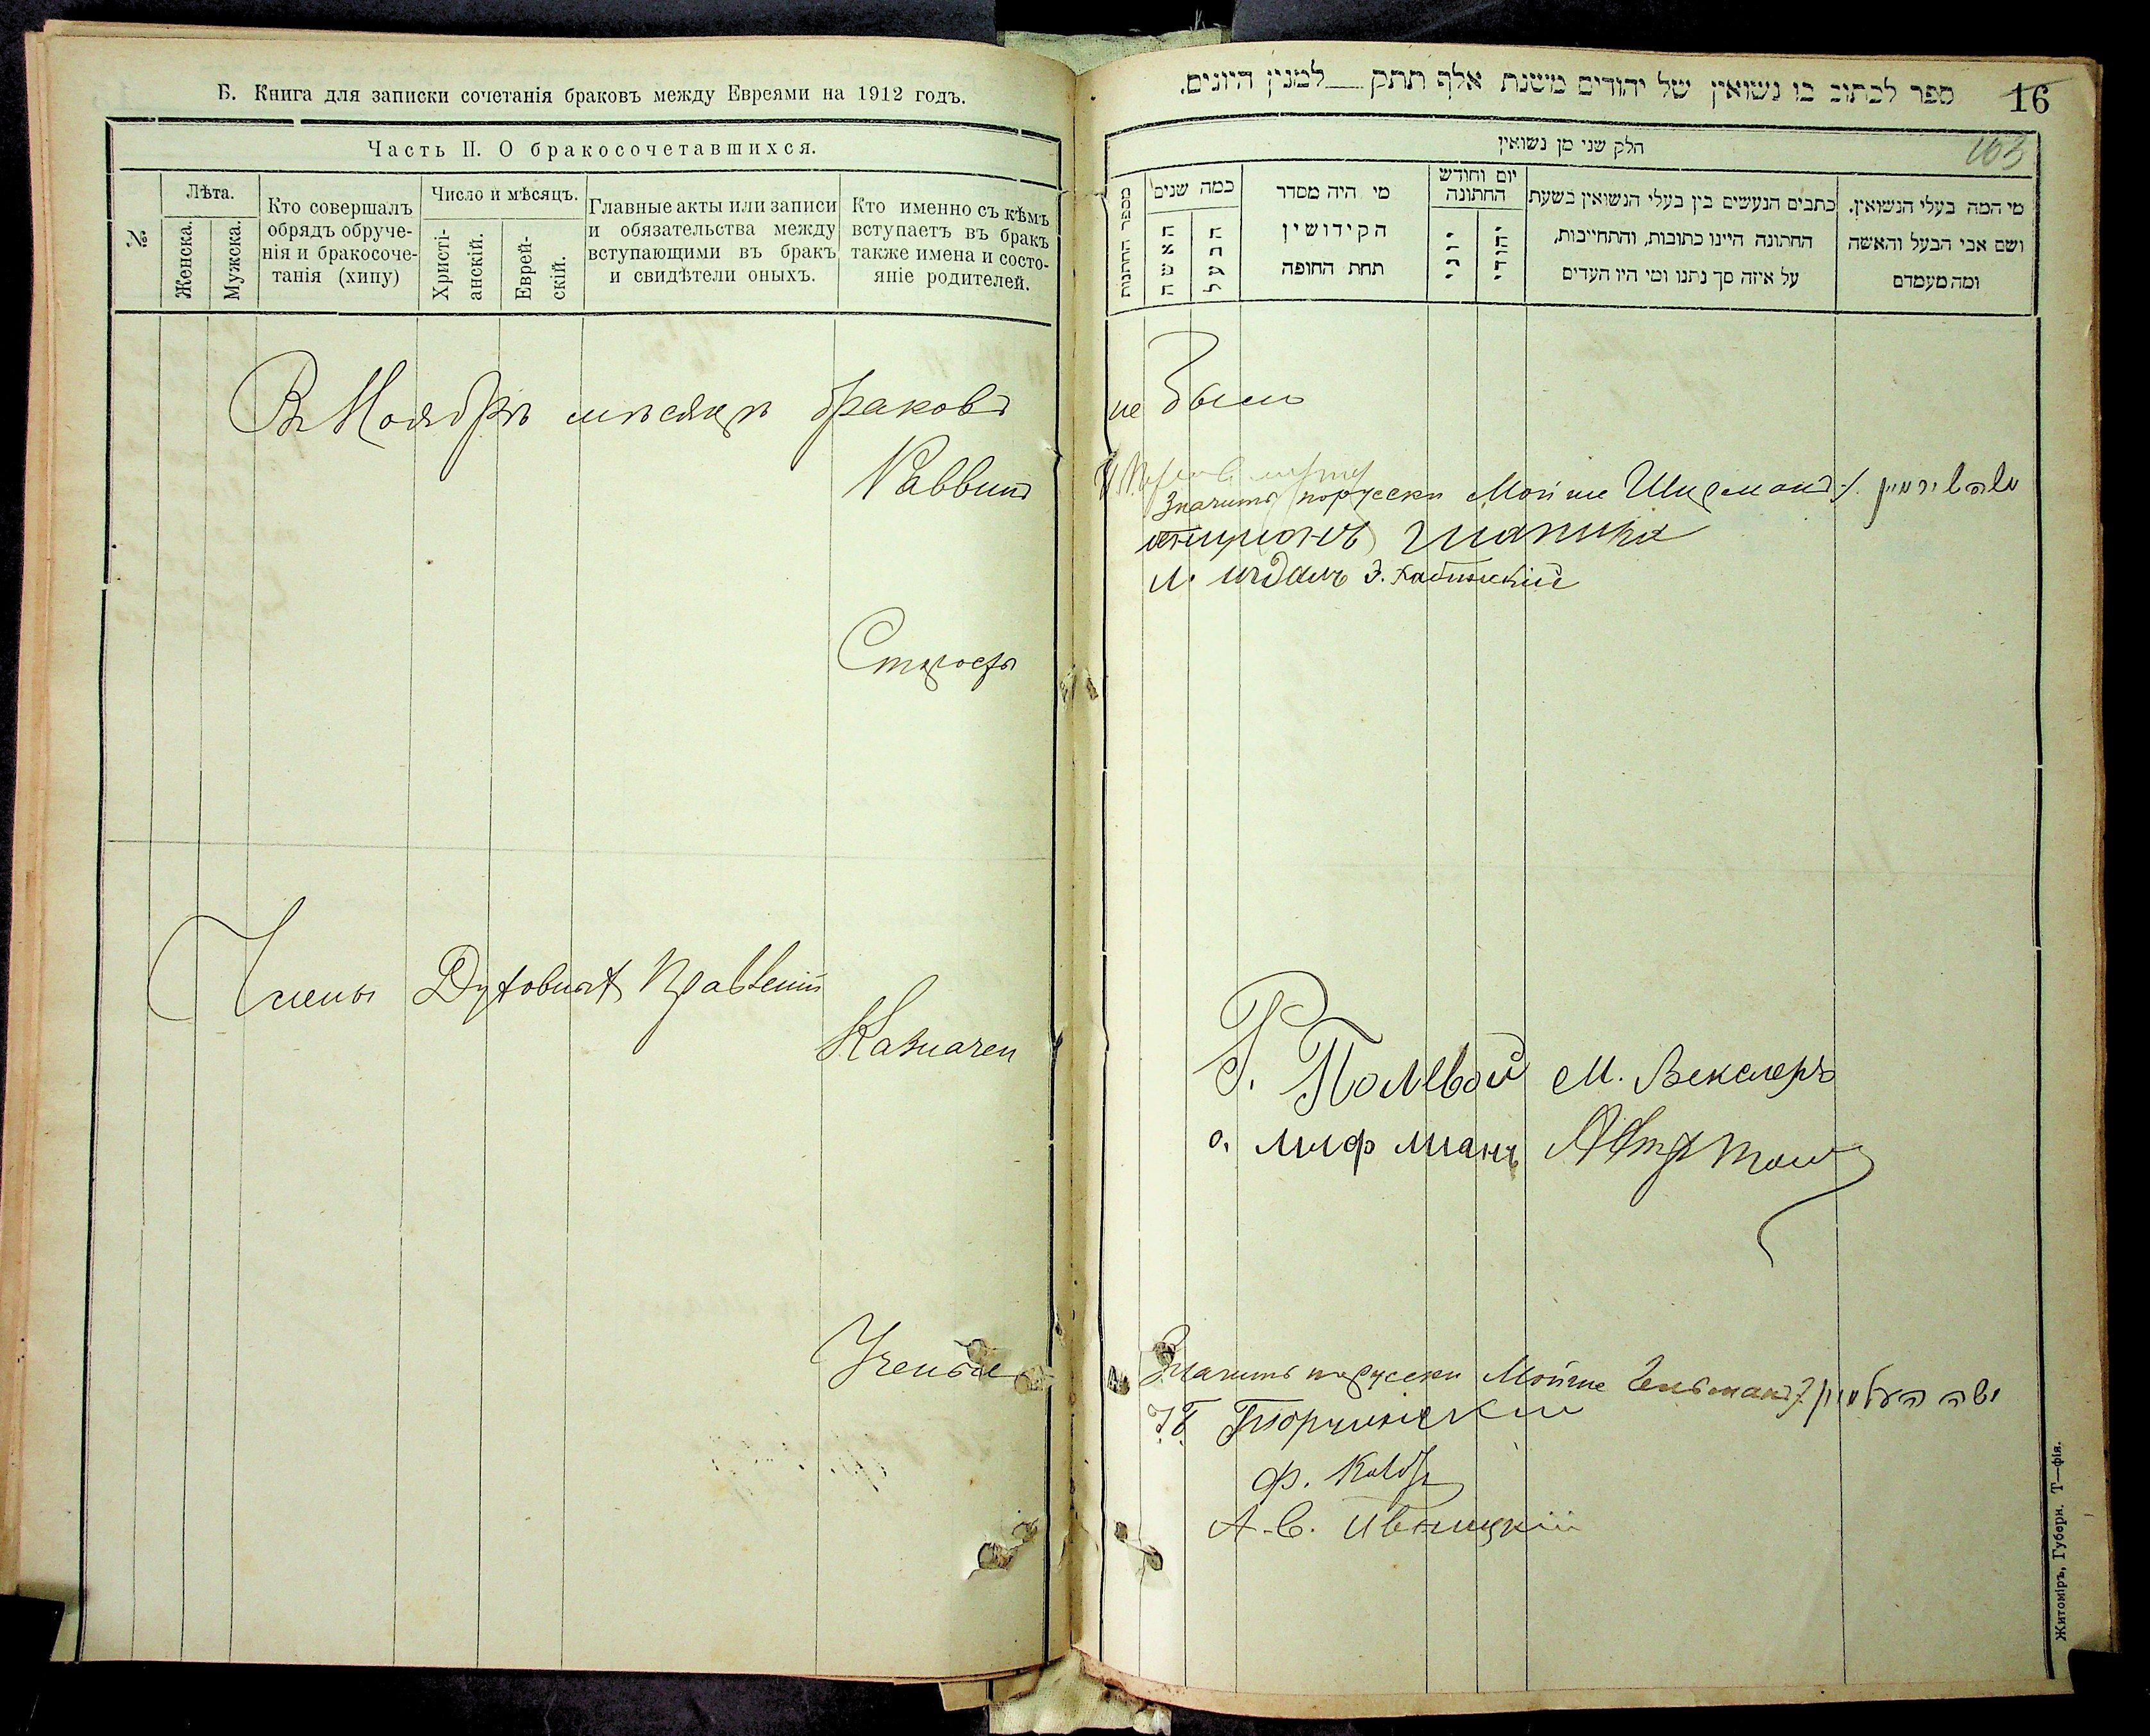 Б. Книга для записки сочетанія браковъ между Евреями на 1912 годъ.
Часть II. О бракосочетавшихся.
№
Лѣта.
Женска.
Мужска.
Кто совершалъ
обрядъ обруче-
нія и бракосоче-
танія (хипу)
Число и мѣсяцъ.
Христі-
анскій.
Еврей-
скій.
Главные акты или записи
и обязательства между
вступающими въ бракъ
и свидѣтели оныхъ.
Кто именно съ кѣмъ
вступаетъ въ бракъ
также имена и состо-
яніе родителей.
Въ Ноябрѣ мѣсяцѣ браковъ
Раввинъ
Старосты
Члены Духовныхъ Правленій
Казначеи
Ученые
ספר לכתוב בו נשואין של יהודים משנת אלף תתק למנין היונים.
16
163
חלק שני מן נשואין
מספר החתנות
כמה שנים
האשה
הבעל
מי היה מסדר
הקידושין
תחת החופה
יום וחודש
החתונה
יוני
יהודי
כתבים הנעשים בין בעלי הנשואין בשעת
החתונה היינו כתובות, והתחייבות,
על איזה סך נתנו ומי היו העדים
מי המה בעלי הנשואין.
ושם אבי הבעל והאשה
ומה מעמדם
не было
Значитъ порусски Мойше
Шапиро
Г. Полевой М. Векслеръ
О. Лифманъ
Значитъ порусски Мойше Гельманъ
Ф.
А. С. Ивницкій
Житоміръ, Губерн. Т—фія.